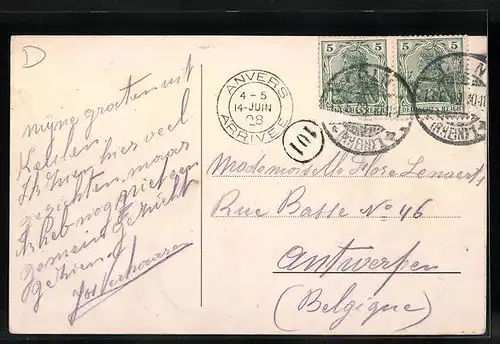 D
mijne groeten uit
Keulen
Ik zien hier veel
gezichten, maar
Ik heb nog niet een
gemeind gezicht
gezien
Jos
ANVERS
4-5
14-JUIN
08
ARRIVEE
101
5 5
DEUTSCHES REICH
(RHEIN) 1
(RHEIN) 1
Mademoiselle Flore Lenaerts
Rue Basse No 46
Antwerpen
(Belgique)